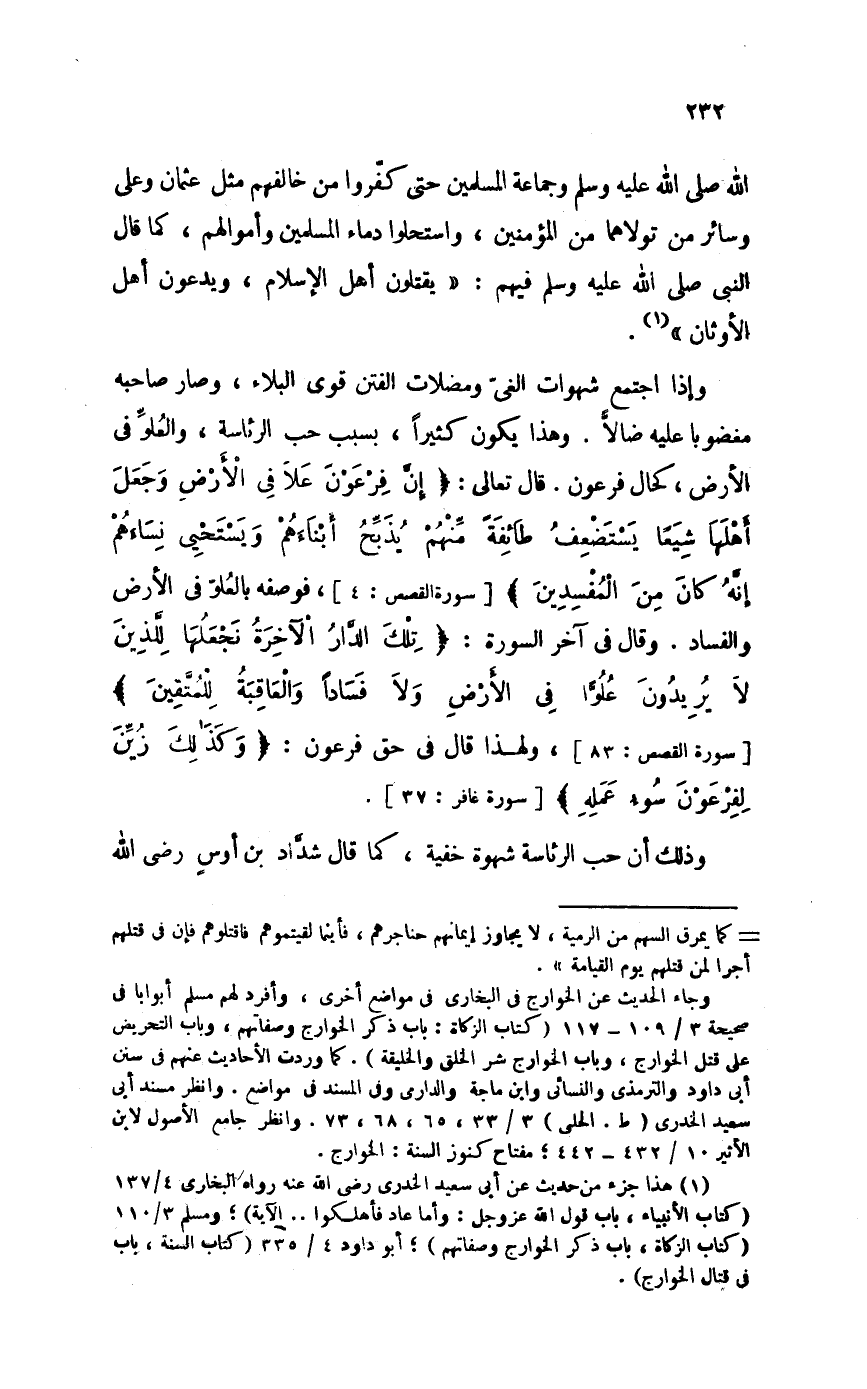 ٢٣٢
الله صلى الله عليه وسلم وجماعة المسلمين حتى كفّروا من خالفهم مثل عثمان وعلى
وسائر من تولاهما من المؤمنين ، واستحلوا دماء المسلمين وأموالهم ، كما قال
النبى صلى الله عليه وسلم فيهم : « يقتلون أهل الإسلام ، ويدعون أهل
الأوثان »(١) .
وإذا اجتمع شهوات الغىّ ومضلات الفتن قوى البلاء ، وصار صاحبه
مغضوبا عليه ضالاًّ . وهذا يكون كثيراً ، بسبب حب الرئاسة ، والعُلوِّ فى
الأرض ، كحال فرعون . قال تعالى : ﴿ إِنَّ فِرْعَوْنَ عَلاَ فِى الْأَرْضِ وَجَعَلَ
أَهْلَهَا شِيَعًا يَسْتَضْعِفُ طَائِفَةً مِّنْهُمْ يُذَبِّحُ أَبْنَاءَهُمْ وَيَسْتَحْيِى نِسَاءَهُمْ
إِنَّهُ كَانَ مِنَ الْمُفْسِدِينَ ﴾ [ سورة القصص : ٤ ] ، فوصفه بالعُلوّ فى الأرض
والفساد . وقال فى آخر السورة : ﴿ تِلْكَ الدَّارُ الْآخِرَةُ نَجْعَلُهَا لِلَّذِينَ
لاَ يُرِيدُونَ عُلُوًّا فِى الأَرْضِ وَلاَ فَسَاداً وَالْعَاقِبَةُ لِلْمُتَّقِينَ ﴾
[ سورة القصص : ٨٣ ] ، ولهذا قال فى حق فرعون : ﴿ وَكَذَٰلِكَ زُيِّنَ
لِفِرْعَوْنَ سُوءُ عَمَلِهِ ﴾ [ سورة غافر : ٣٧ ] .
وذلك أن حب الرئاسة شهوة خفية ، كما قال شدَّاد بن أوسٍ رضى الله
= كما يمرق السهم من الرمية ، لا يجاوز إيمانهم حناجرهم ، فأينما لقيتموهم فاقتلوهم فإن فى قتلهم
أجرا لمن قتلهم يوم القيامة » .
وجاء الحديث عن الخوارج فى البخارى فى مواضع أخرى ، وأفرد لهم مسلم أبوابا فى
صحيحة ٣ / ١٠٩ – ١١٧ (كتاب الزكاة : باب ذكر الخوارج وصفاتهم ، وباب التحريض
على قتل الخوارج ، وباب الخوارج شر الخلق والخليقة ) . كما وردت الأحاديث عنهم فى سنن
أبى داود والترمذى والنسائى وابن ماجة والدارى وفى المسند فى مواضع . وانظر مسند أبى
سعيد الخدرى ( ط . الحلبى ) ٣ / ٣٣ ، ٦٥ ، ٦٨ ، ٧٣ . وانظر جامع الأصول لابن
الأثير ١٠ / ٤٣٢ – ٤٤٢ ؛ مفتاح كنوز السنة : الخوارج .
(١) هذا جزء من حديث عن أبى سعيد الخدرى رضى الله عنه رواه البخارى ١٣٧/٤
(كتاب الأنبياء ، باب قول الله عز وجل : وأما عاد فأهلكوا .. الآية) ؛ ومسلم ١١٠/٣
(كتاب الزكاة ، باب ذكر الخوارج وصفاتهم ) ؛ أبو داود ٤ / ٣٣٥ (كتاب السنة ، باب
فى قتال الخوارج) .